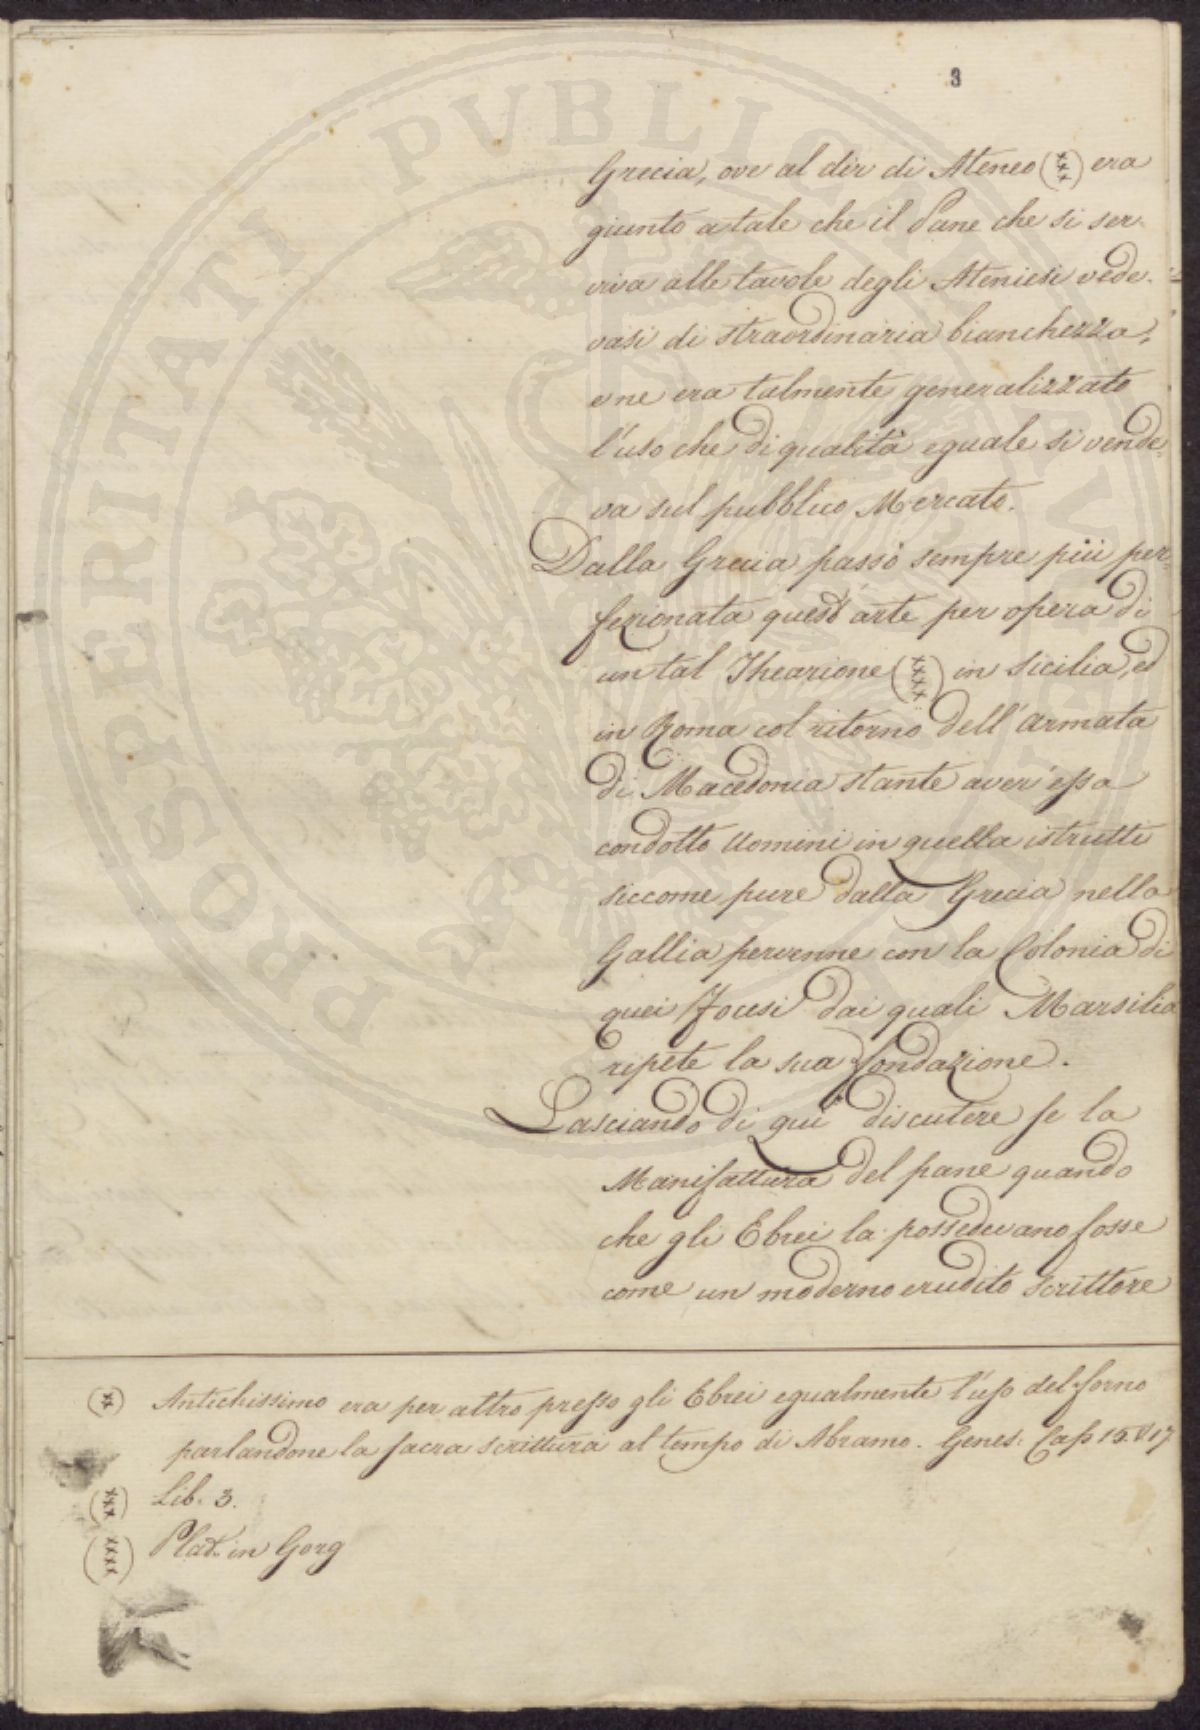 3
Grecia, ove al dir di Ateneo (xxx) era
giunto a tale che il Pane che si ser-
viva alle tavole degli Ateniesi vede-
vasi di straordinaria bianchezza,
e ne era talmente generalizzato
l'uso che di qualità eguale si vende-
va sul pubblico Mercato.
Dalla Grecia passò sempre più per-
fezionata quest'arte per opera di
un tal Thearione (xxxx) in Sicilia, ed
in Roma col ritorno dell'armata
di Macedonia stante aver'essa
condotto Uomini in quella istrutti
siccome pure dalla Grecia nella
Gallia pervenne con la Colonia di
quei Focesi dai quali Marsilia
ripete la sua fondazione.
Lasciando di qui discutere se la
Manifattura del pane quando
che gli Ebrei la possedevano fosse
come un moderno erudito Scrittore
(xx) Antichissimo era per altro presso gli Ebrei egualmente l'uso del forno
parlandone la sacra scrittura al tempo di Abramo. Genes: Cap 15. V 17.
(xxx) Lib. 3.
(xxxx) Plat. in Gorg
PROSPERITATI PUBLICAE